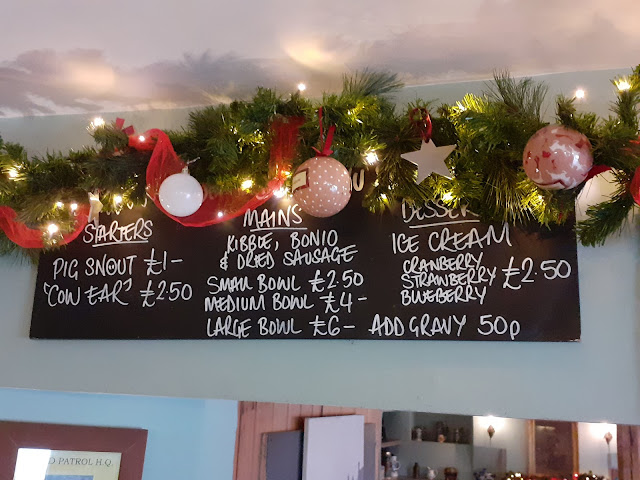 STARTERS
PIG SNOUT £1-
"COW EAR" £2.50
MAINS
KIBBLE, BONIO
& DRIED SAUSAGE
SMALL BOWL £2.50
MEDIUM BOWL £4-
LARGE BOWL £6-
ICE CREAM
CRANBERRY
STRAWBERRY £2.50
BLUEBERRY
ADD GRAVY 50p
PATROL H.Q.